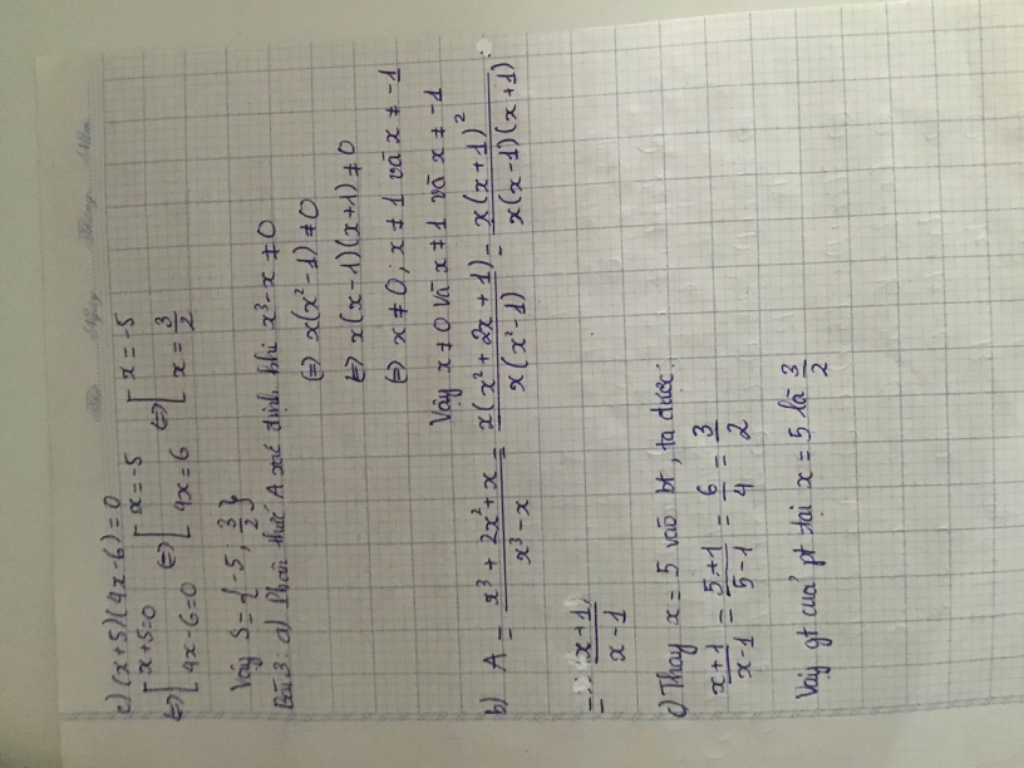 Thứ Ngày Tháng Năm
c) (x+5)(4x-6)=0
⇔ [ x+5=0 ⇔ [ x=-5 ⇔ [ x=-5
4x-6=0 4x=6 x=3/2
Vậy S={-5, 3/2}
Bài 3: a) Phân thức A xác định khi x³-x≠0
⇔ x(x²-1)≠0
⇔ x(x-1)(x+1)≠0
⇔ x≠0; x≠1 và x≠-1
Vậy x≠0 và x≠1 và x≠-1
b) A = (x³+2x²+x)/(x³-x) = x(x²+2x+1)/x(x²-1) = x(x+1)²/x(x-1)(x+1)
= (x+1)/(x-1)
c) Thay x=5 vào bt, ta được:
(x+1)/(x-1) = (5+1)/(5-1) = 6/4 = 3/2
Vậy gt của pt tại x=5 là 3/2